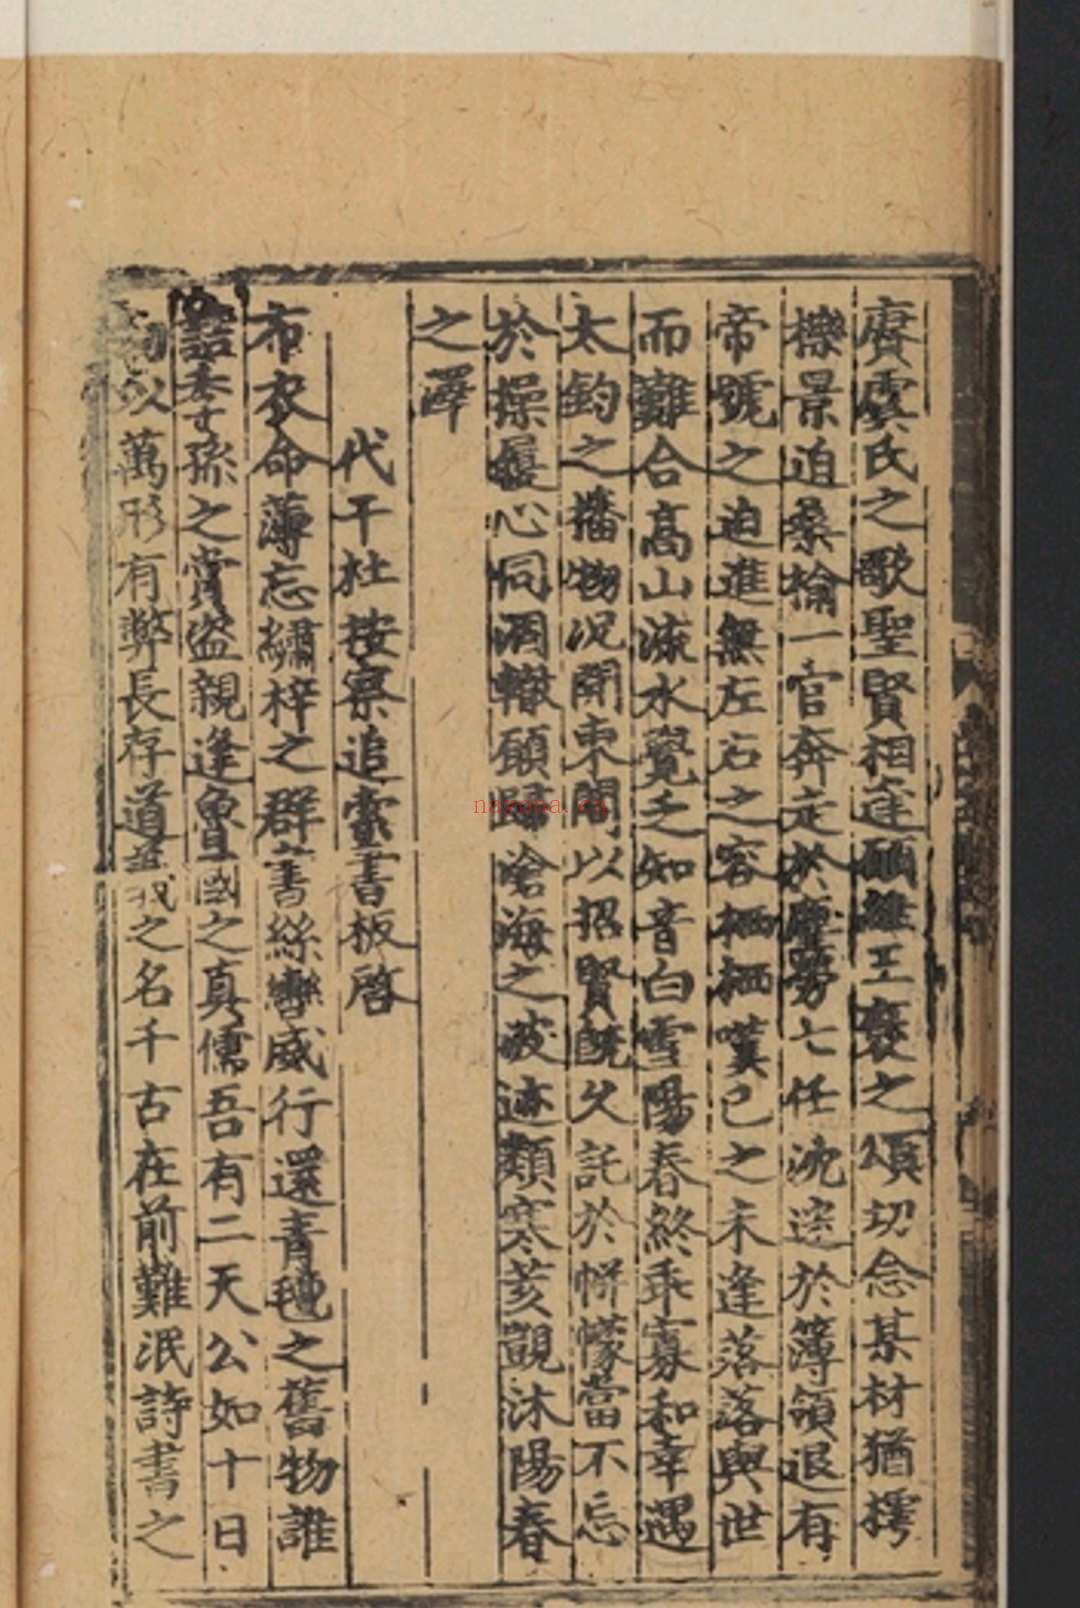 賡虞氏之歌聖賢相逢願繼王襃之頌切念某材猶樗
櫟景迫桑榆一官奔走於塵勞七任沈迷於簿領退有
帝號之迫進無左右之容栖栖嘆已之未逢落落與世
而難合高山流水覺乏知音白雪陽春終乖寡和幸遇
太鈞之播物況開東閤以招賢旣久託於帡幪當不忘
於操履心同涸轍願歸滄海之波迹類寒荄覬沐陽春
之澤
代干杜按察追索書板啓
布衣命薄忘繡梓之群書絲轡威行還青氈之舊物誰
詰季孫之賞盜親逢魯國之真儒吾有二天公如十日
以萬形有弊長存道義之名千古在前難泯詩書之